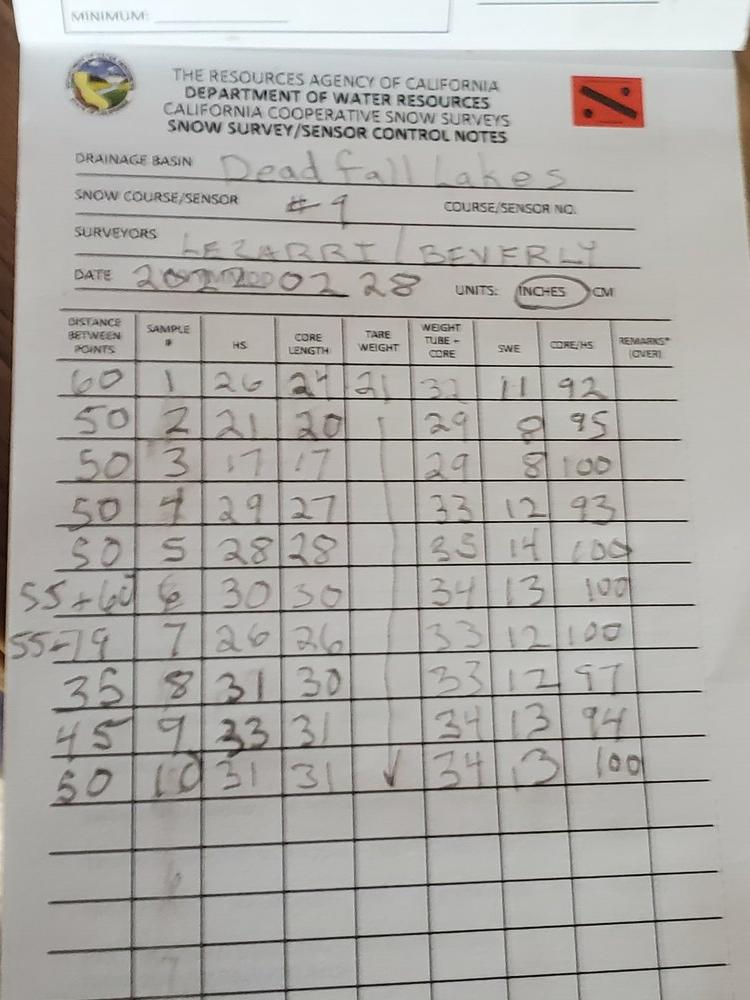 MINIMUM:
THE RESOURCES AGENCY OF CALIFORNIA
DEPARTMENT OF WATER RESOURCES
CALIFORNIA COOPERATIVE SNOW SURVEYS
SNOW SURVEY/SENSOR CONTROL NOTES
DRAINAGE BASIN Deadfall Lakes
SNOW COURSE/SENSOR #9 COURSE/SENSOR NO.
SURVEYORS LEZARRI / BEVERLY
DATE 02 28 UNITS: INCHES CM
DISTANCE BETWEEN POINTS SAMPLE # HS CORE LENGTH TARE WEIGHT WEIGHT TUBE + CORE SWE CORE/HS REMARKS* (OVER)
60 1 26 24 21 32 11 92
50 2 21 20 29 8 95
50 3 17 17 29 8 100
50 4 29 27 33 12 93
50 5 28 28 35 14 100
55+60 6 30 30 34 13 100
55-79 7 26 26 33 12 100
35 8 31 30 33 12 97
45 9 33 31 34 13 94
50 10 31 31 34 13 100